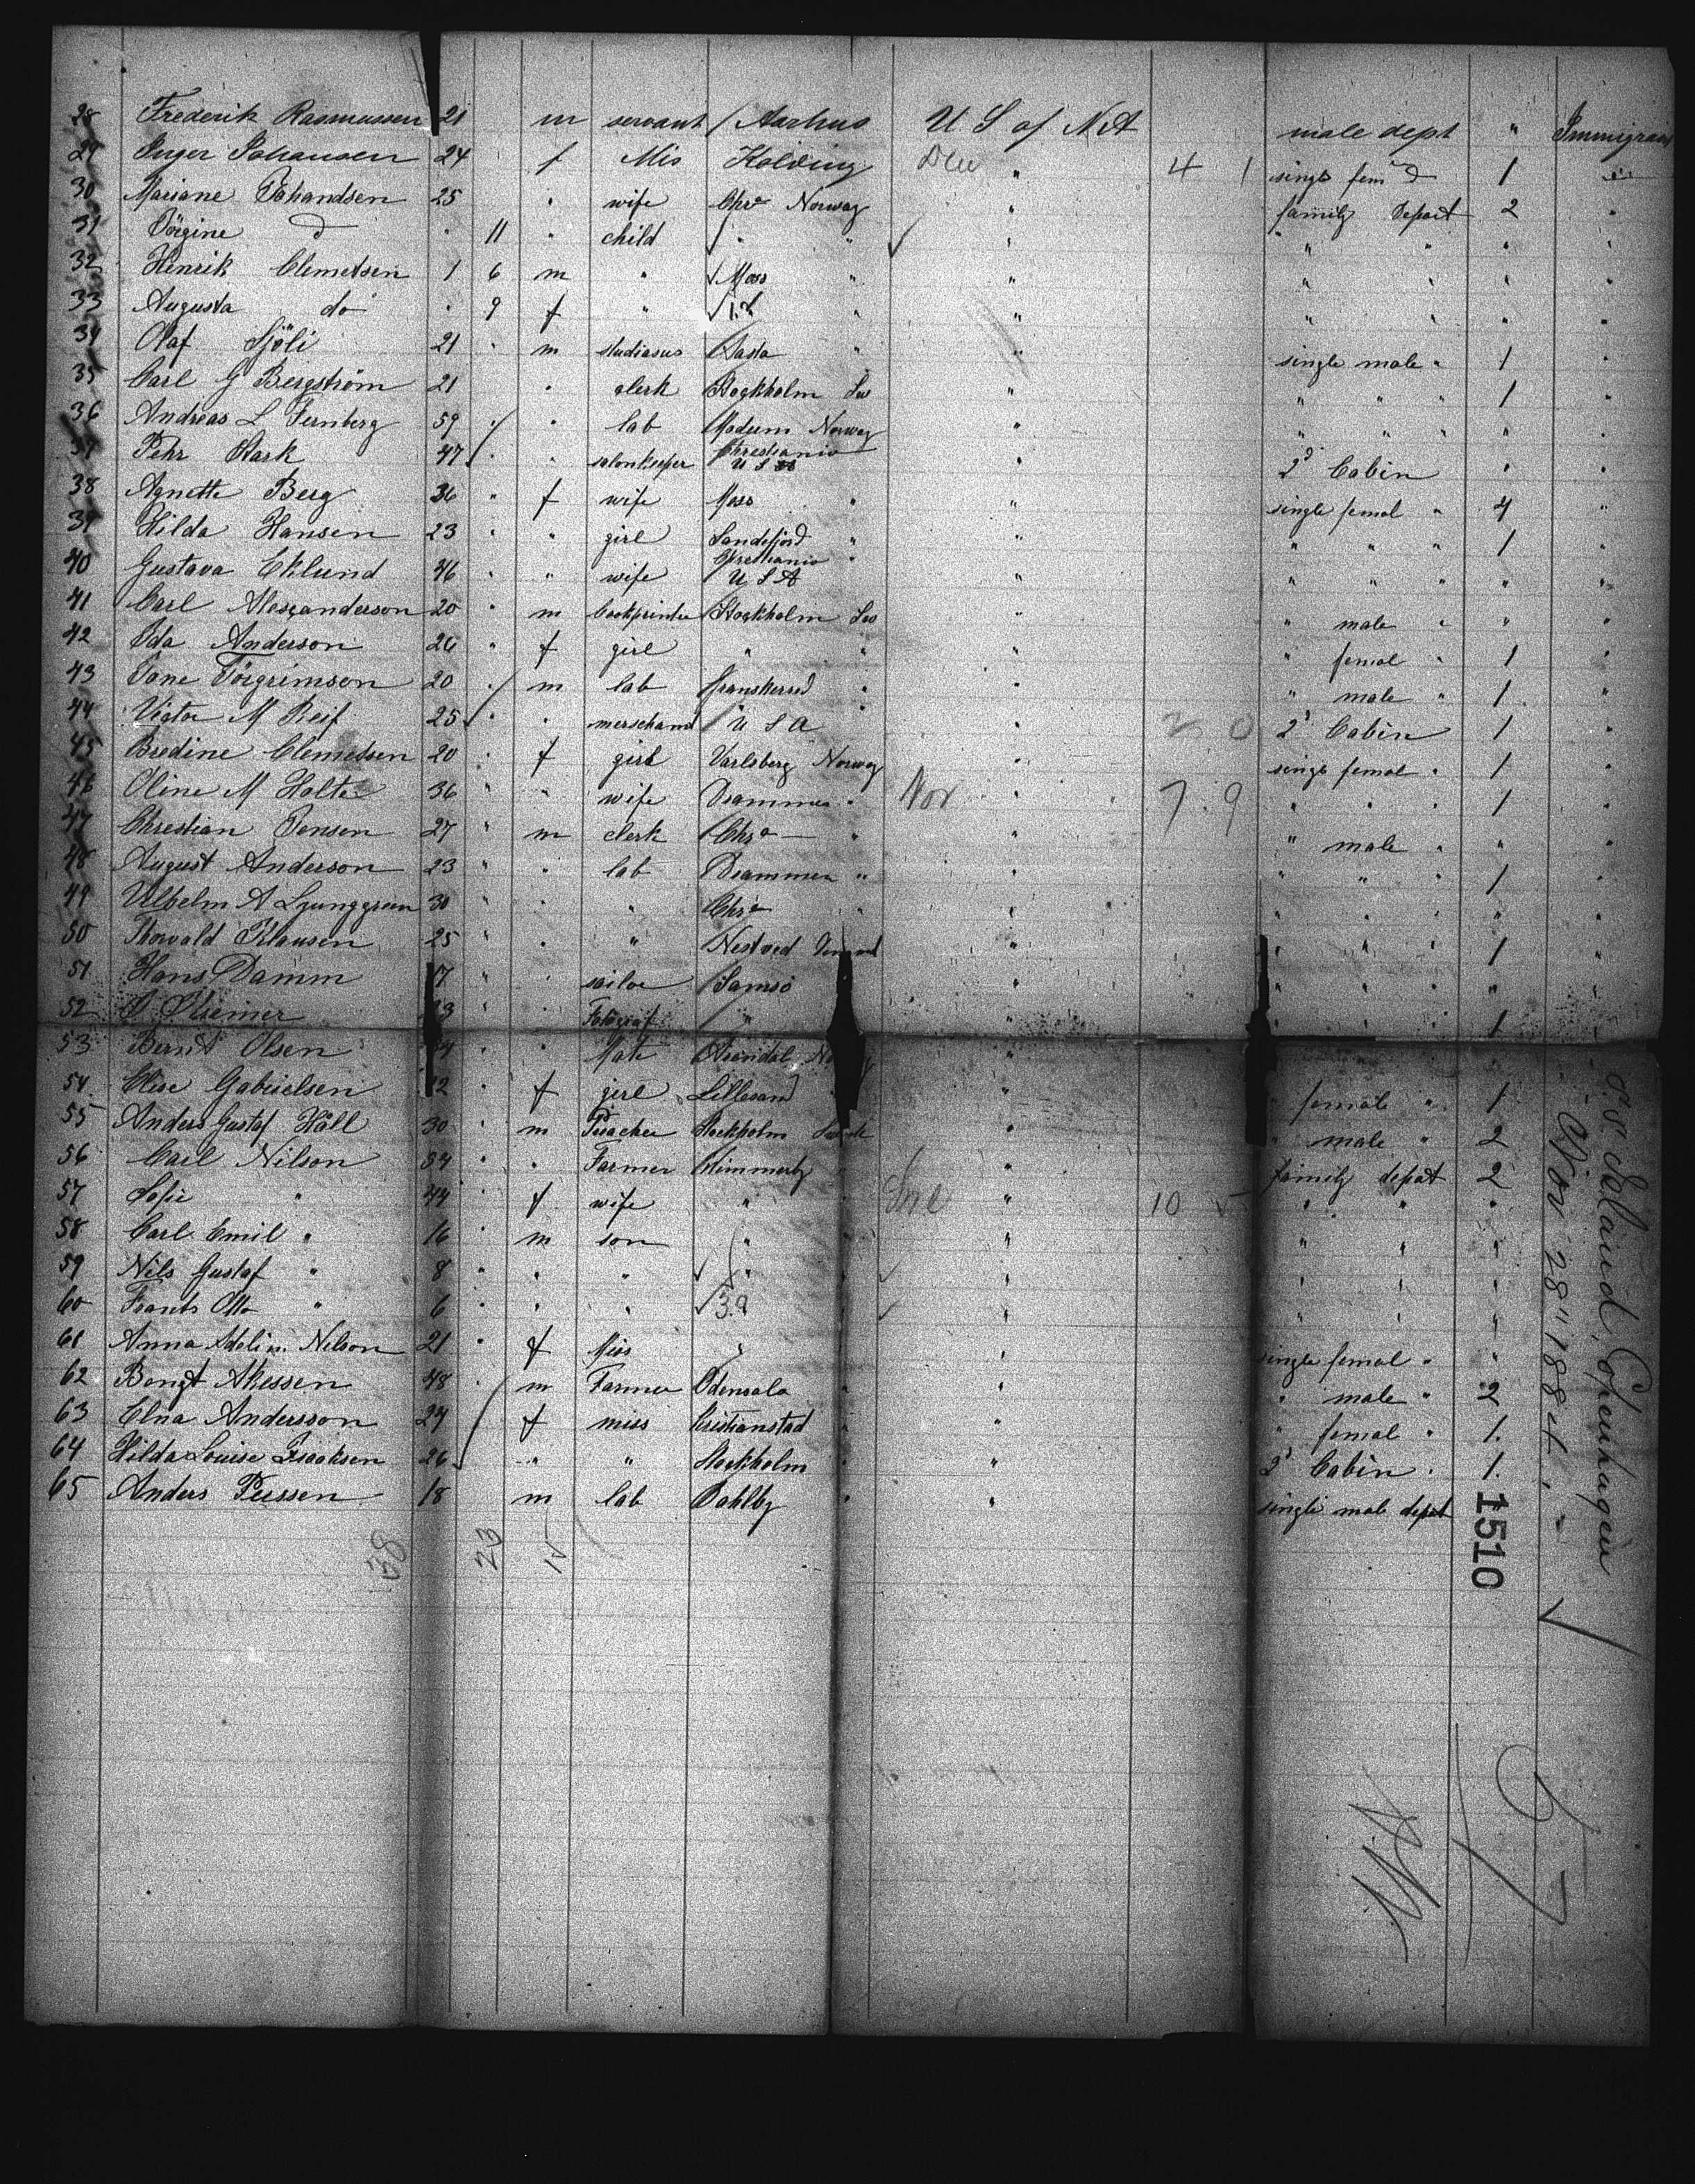 28 Frederik Rasmussen 21 m servant Aarhus U S of N A male dept " Immigrant
29 Inger Johansen 24 f Mis Kolding Den " 4 1 singl fem d 1 "
30 Mariane Johandsen 25 " wife Chra Norway " family Depart 2 "
31 Jörgine d " 11 " child " " " " " " "
32 Henrik Clemetsen 1 6 m " Moss " " " " " "
33 Augusta do " 9 f " 1.2 " " " " " "
34 Olaf Sjöli 21 " m studiosus Hasta " " single male " 1 "
35 Carl G Bergström 21 " clerk Stockholm Sw " " " " 1 "
36 Andreas L Fernberg 59 " " lab Modum Norway " " " " " "
37 Pehr Stark 47 " " salonkeeper Christiania U S " 2d Cabin " "
38 Agnette Berg 36 " f wife Moss " " single femal " 4 "
39 Hilda Hansen 23 " " girl Sandefjord " " " " " 1 "
40 Gustava Eklund 46 " " wife Christiania " U S A " " " " " "
41 Carl Alexanderson 20 " m bookprinter Stockholm Sw " " male " " "
42 Ida Anderson 26 " f girl " " " " femal " 1 "
43 Jane Törgrimson 20 " m lab " " " male " 1 "
44 Victor M Reif 25 " " merschand U S A " 2 0 2d Cabin 1 "
45 Bredine Clemedsen 20 " f girl Varlsberg Norway " singl femal " 1 "
46 Oline M Holte 36 " " wife Drammen " Nor " 7 9 " " " 1 "
47 Christian Jensen 27 " m clerk Chra " " " male " " "
48 August Anderson 23 " " lab Drammen " " " " " 1 "
49 Vilhelm A Ljunggreen 30 " " " Chra " " " " " " "
50 Thorvald Klausen 25 " " " Nestved " " " " 1 "
51 Hans Damm 17 " " sailor Samsö " " " " " "
52 " " Fotograf " " " " " 1 "
53 Bernt Olsen " " Mate Arendal "
54 Elise Gabrielsen " f girl Lillesand " " female " 1
55 Anders Gustaf Häll 30 " m Teacher Stockholm " " male " 2
56 Carl Nilson 34 " " Farmer " family depat 2
57 Sofie " 44 " f wife " Swe " 10 5 " " "
58 Carl Emil " 16 " m son " " " " "
59 Nils Gustaf " 8 " " " " " " " "
60 Frants Otto " 6 " " " 3.9 " " " "
61 Anna Adelin Nelson 21 " f Miss " " single femal " "
62 Bengt Akessen 48 " m Farmer Odensala " " " male " 2
63 Elna Andersson 27 f miss Cristianstad " " " femal " 1.
64 Hilda Louise Isaaksen 26 " " Stockholm " " 2d Cabin " 1.
65 Anders Perssen 18 m lab Dahlby " " single male depat
23 15
1510
S.S. Island, Copenhagen
Nov 28" 1884.